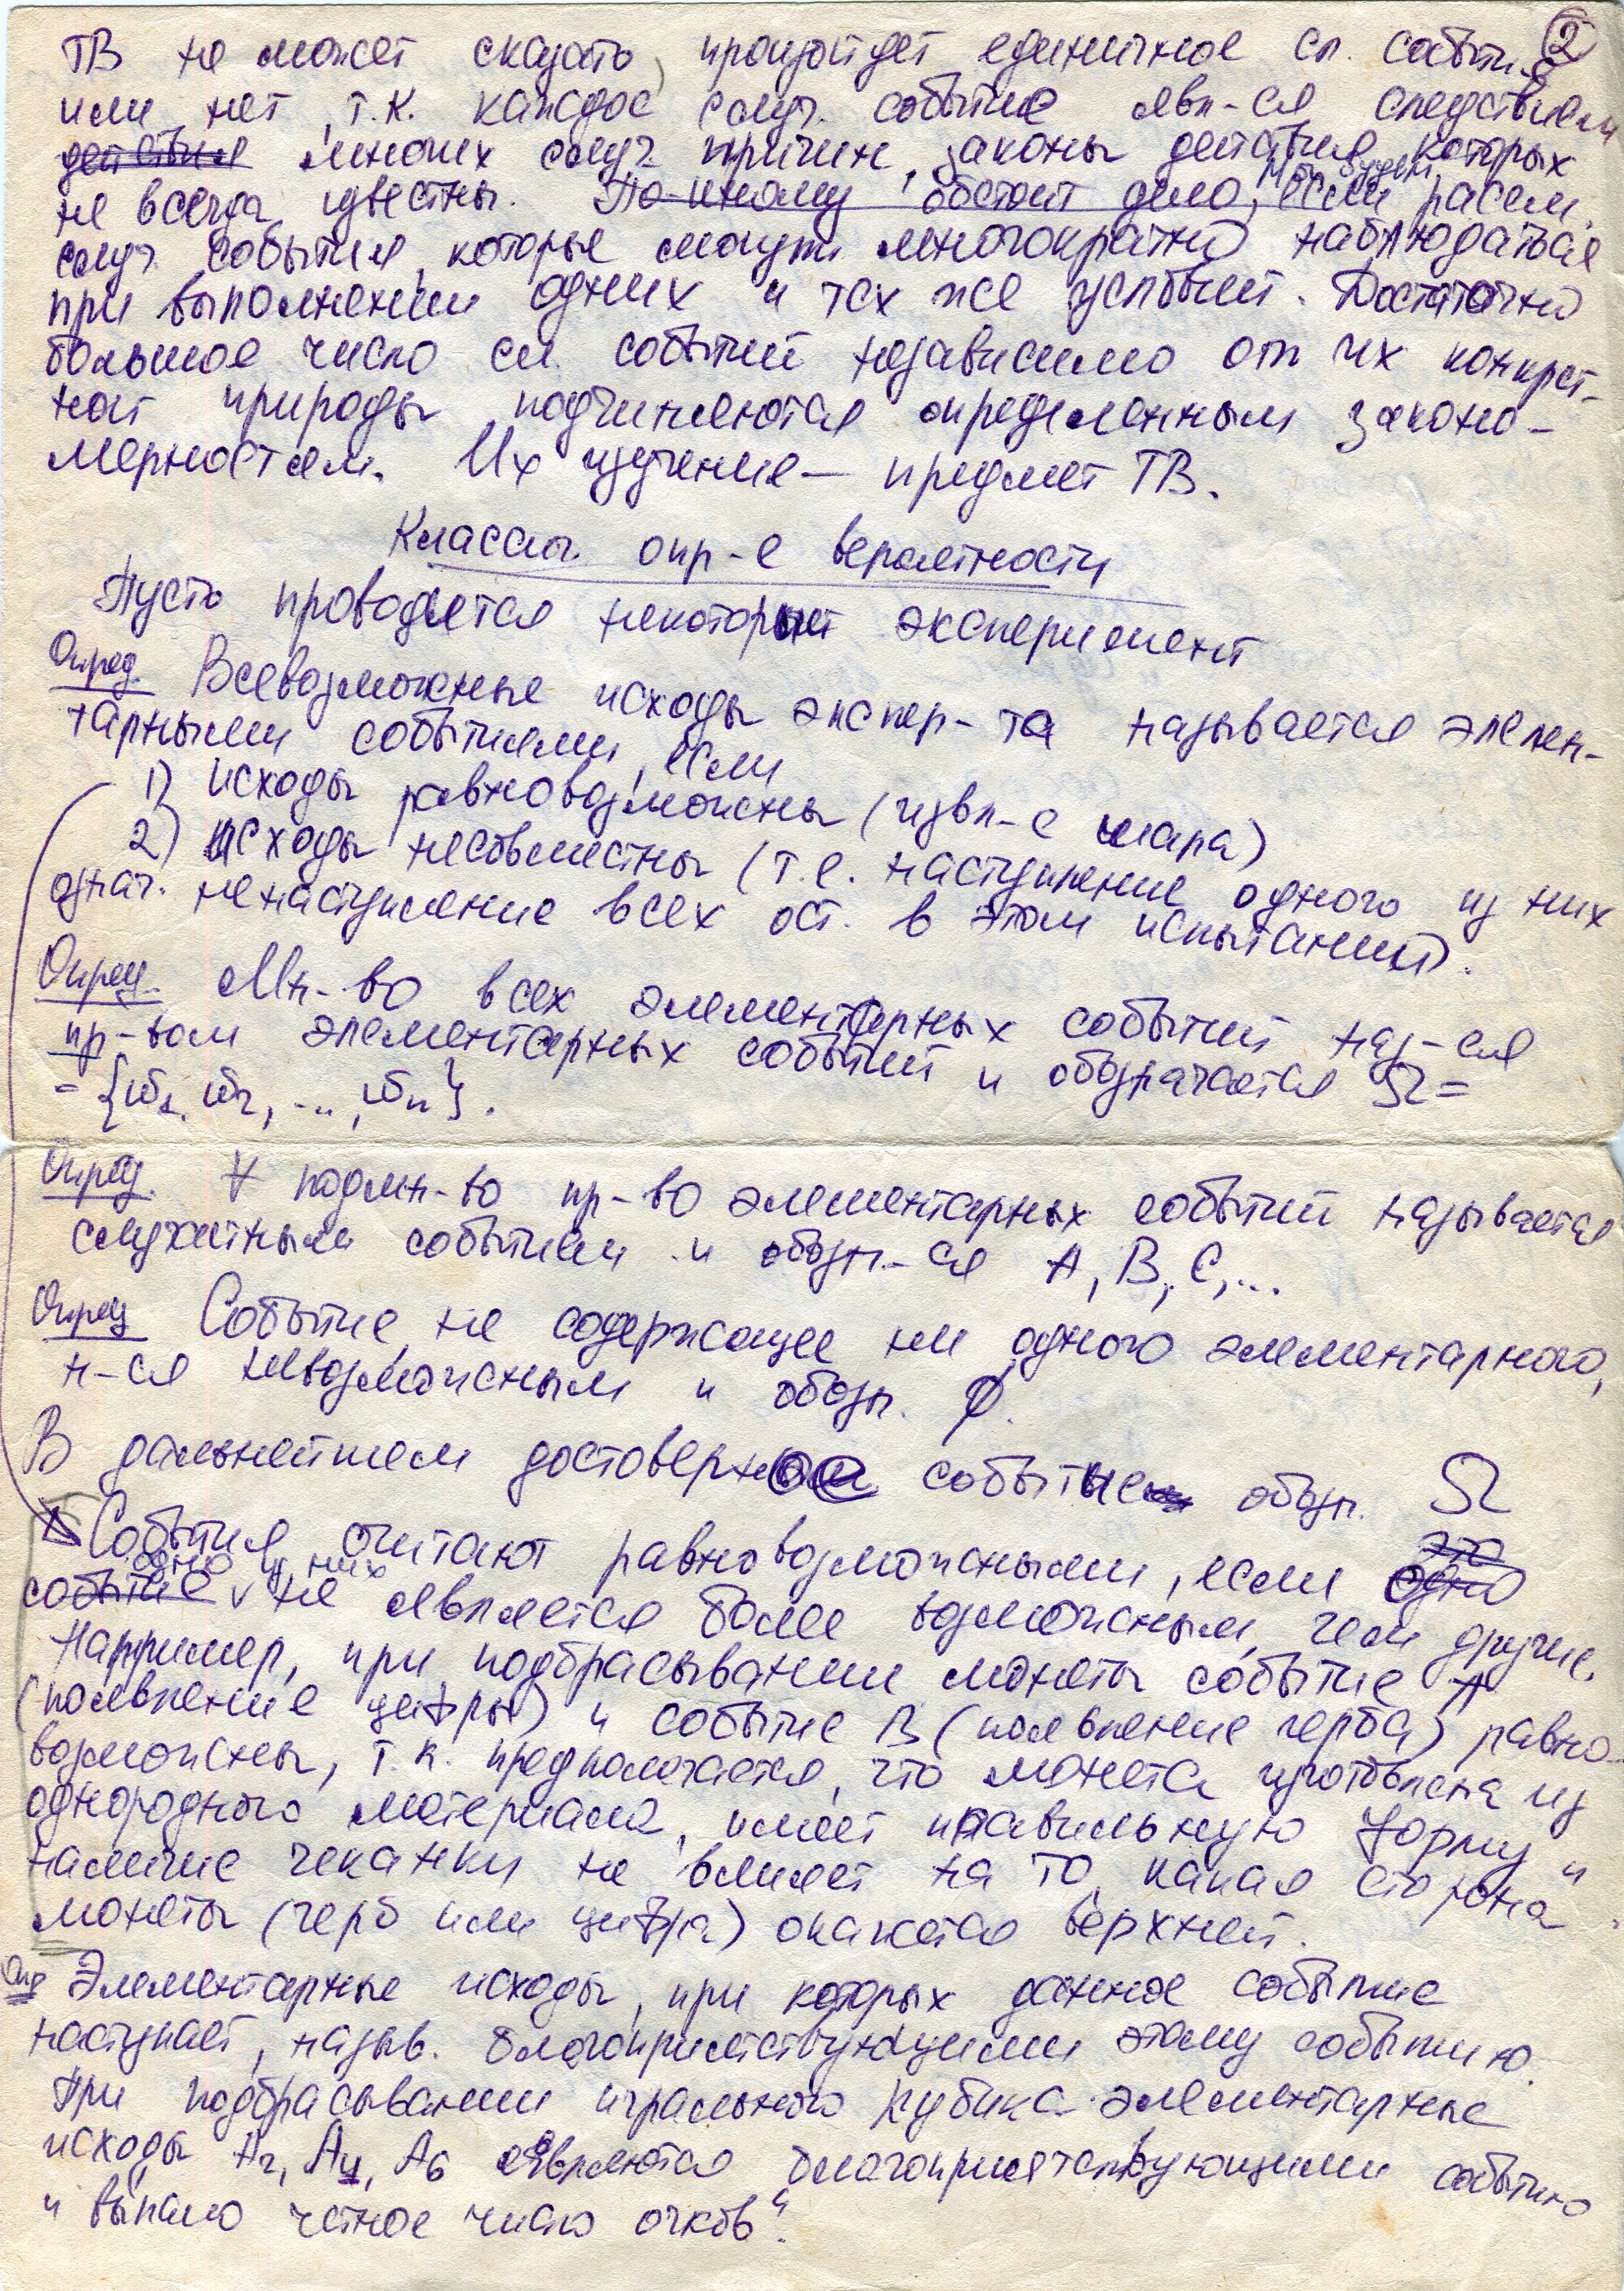 2
ТВ не может сказать, произойдет единичное сл. событие
или нет, т.к. каждое случ. событие явл-ся следствием
действия многих случ. причин, законы действия которых
не всегда известны. По-иному обстоит дело, если мы будем рассм.
случ. события, которые могут многократно наблюдаться
при выполнении одних и тех же условий. Достаточно
большое число сл. событий независимо от их конкрет-
ной природы подчиняются определенным законо-
мерностям. Их изучение — предмет ТВ.
Классич. опр-е вероятности
Пусть проводится некоторый эксперимент
Опред. Всевозможные исходы экспер-та называется элемен-
тарными событиями, если
1) исходы равновозможны (извл-е шара)
2) исходы несовместны (т.е. наступление одного из них
означ. ненаступление всех ост. в этом испытании).
Опред. Мн-во всех элементарных событий наз-ся
пр-вом элементарных событий и обозначается Ω =
= {ω₁, ω₂, ..., ωₙ}.
Опред. ∀ подмн-во пр-во элементарных событий называется
случайным событием и обозн.-ся A, B, C, ...
Опред Событие, не содержащее ни одного элементарного,
н-ся невозможным и обозн. ∅.
В дальнейшем достоверное событие обозн. Ω
События считают равновозможными, если это одно
событие одно из них не является более возможным, чем другие.
Например, при подбрасывании монеты событие A
(появление цифры) и событие B (появление герба) равно-
возможны, т.к. предполагается, что монета изготовлена из
однородного материала, имеет правильную форму и
наличие чеканки не влияет на то, какая сторона
монеты (герб или цифра) окажется верхней.
Опр Элементарные исходы, при которых данное событие
наступает, назыв. благоприятствующими этому событию.
При подбрасывании игрального кубика элементарные
исходы A₂, A₄, A₆ являются благоприятствующими событию
"выпало четное число очков".